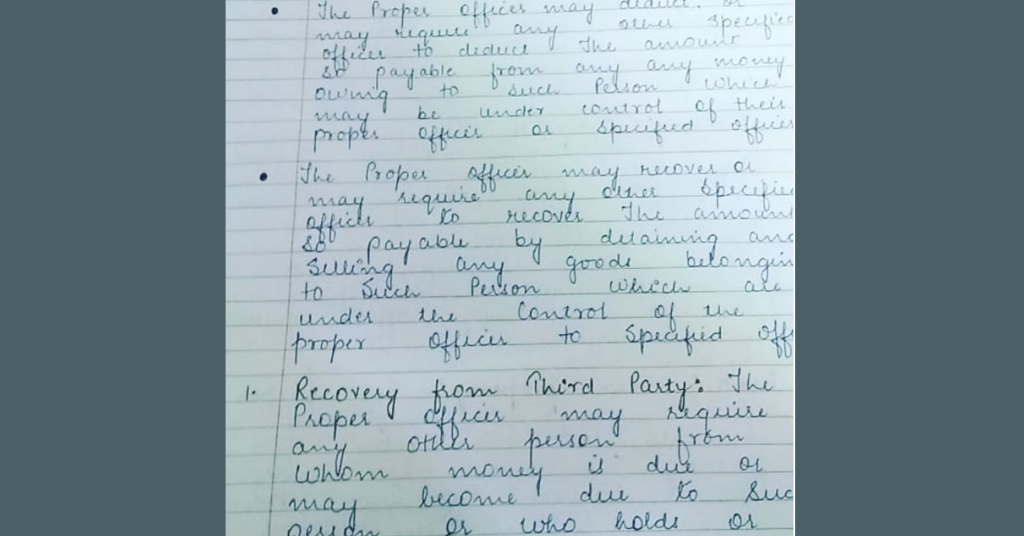 • The Proper officer may deduct or
may require any other specified
officer to deduct the amount
so payable from any any money
owing to such Person which
may be under control of their
proper officer or specified officer
• The Proper officer may recover or
may require any other specifie
officer to recover the amount
so payable by detaining and
selling any goods belongin
to such Person which are
under the Control of the
proper officer to specified off
1. Recovery from Third Party: The
Proper officer may require
any other person from
whom money is due or
may become due to suc
person or who holds or